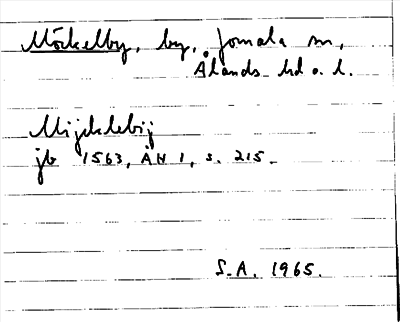 Möckelby, by, Jomala sn,
Ålands hd o. l.
Mijcklebij
jb 1563, ÅH 1, s. 215.
S.A. 1965.